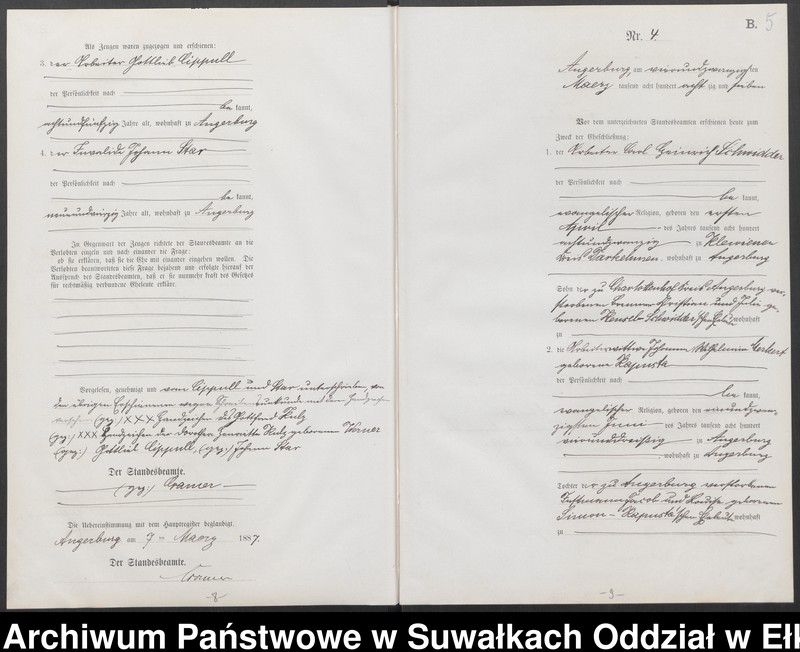 Als Zeugen waren zugezogen und erschienen:
3. der Arbeiter Gottlieb Lippull
der Persönlichkeit nach
be kannt,
achtundfünfzig Jahre alt, wohnhaft zu Angerburg
4. der Invalide Johann Star
der Persönlichkeit nach
be kannt,
Jahre alt, wohnhaft zu Angerburg
In Gegenwart der Zeugen richtete der Standesbeamte an die
Verlobten einzeln und nach einander die Frage:
ob sie erklären, daß sie die Ehe mit einander eingehen wollen. Die
Verlobten beantworteten diese Frage bejahend und erfolgte hierauf der
Ausspruch des Standesbeamten, daß er sie nunmehr kraft des Gesetzes
für rechtmäßig verbundene Eheleute erkläre.
Vorgelesen, genehmigt und vom Lippull und Star unterschrieben, von
den übrigen Erschienenen wegen mit dem Handzeichen
versehen (gez:) XXX Handzeichen des Gottfried Kulz
(gez:) XXX Handzeichen der Henriette Kulz geborenen Werner
(gez:) Gottlieb Lippull, (gez:) Johann Star
Der Standesbeamte.
(gez:) Cramer
Die Uebereinstimmung mit dem Hauptregister beglaubigt
Angerburg am 7 ten Maerz 1887.
Der Standesbeamte.
Cramer
-8-
B. 5
Nr. 4.
Angerburg am vierundzwanzigsten
Maerz tausend acht hundert acht zig und sieben
Vor dem unterzeichneten Standesbeamten erschienen heute zum
Zweck der Eheschließung:
1. der Arbeiter Carl Heinrich Schwidder
der Persönlichkeit nach
be kannt,
evangelischer Religion, geboren den ersten
April des Jahres tausend acht hundert
achtundzwanzig zu Klewienen
Kreis Darkehmen, wohnhaft zu Angerburg
Sohn der zu Charlottenhof Kreis Angerburg ver-
storbenen Christian und Julie ge-
borenen Hensel-Schwidder'schen Eheleute wohnhaft
zu
2. die Arbeiterwittwe Johanne Wilhelmine
geborene Kapusta
der Persönlichkeit nach
be kannt,
evangelischer Religion, geboren den
zigsten Juni des Jahres tausend acht hundert
vierunddreißig zu Angerburg
, wohnhaft zu Angerburg
Tochter der zu Angerburg verstorbenen
Instmann Jacob und Louise geborenen
Simon-Kapusta'schen Eheleute wohnhaft
zu
-9-
Archiwum Państwowe w Suwałkach Oddział w Ełk